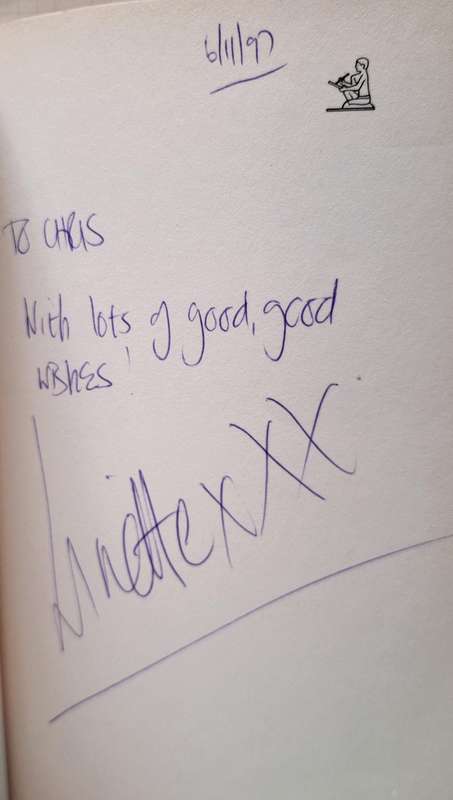 6/11/97
TO CHRIS
With lots of good, good
WIShES!
Linette xXX